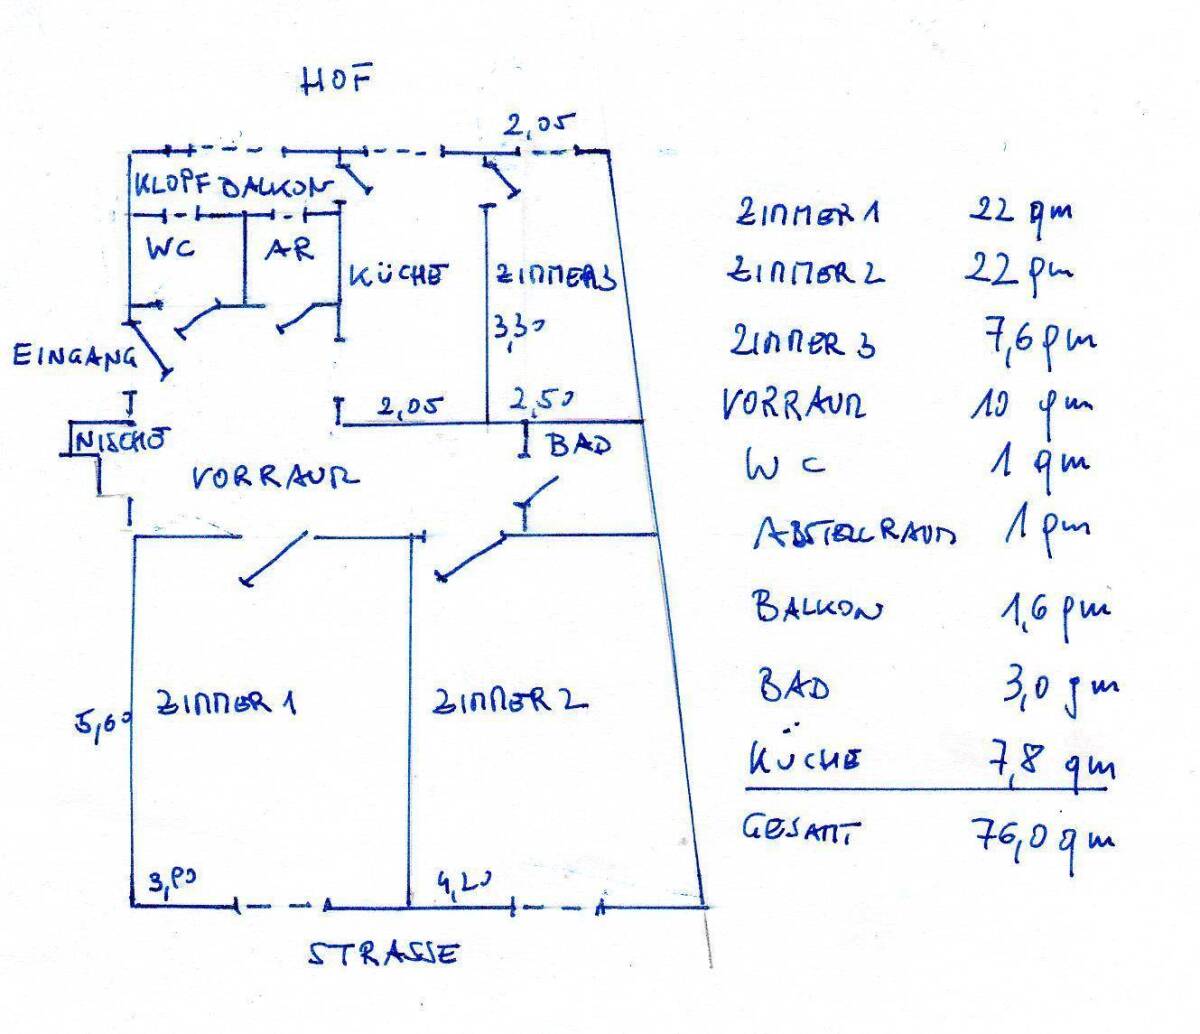 HOF
2,05
KLOPFBALKON
WC
AR
KÜCHE
ZIMMER 3
3,30
EINGANG
2,05
2,50
NISCHE
BAD
VORRAUM
ZIMMER 1
ZIMMER 2
5,60
3,80
4,20
STRASSE
ZIMMER 1 22 qm
ZIMMER 2 22 qm
ZIMMER 3 7,6 qm
VORRAUM 10 qm
WC 1 qm
ABSTELLRAUM 1 qm
BALKON 1,6 qm
BAD 3,0 qm
KÜCHE 7,8 qm
GESAMT 76,0 qm